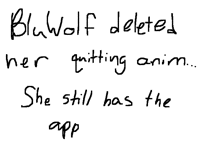 BluWolf deleted
her quitting anim...
She still has the
app